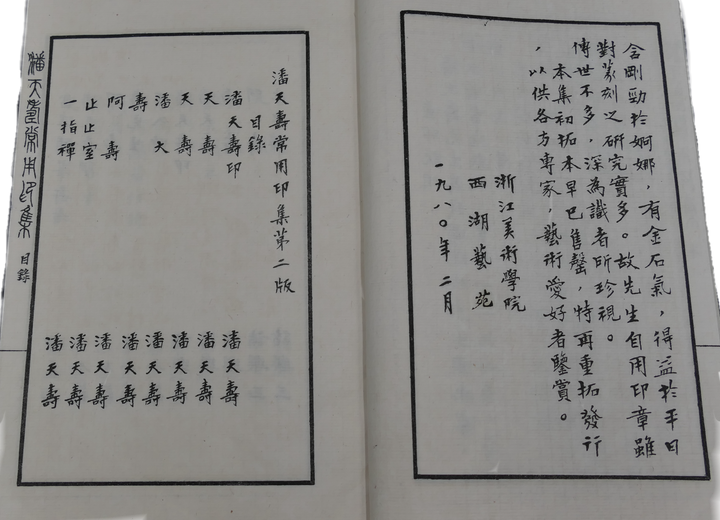 含剛勁於婀娜，有金石氣，得益於平日
對篆刻之研究實多。故先生自用印章雖
傳世不多，深為識者所珍視。
本集初拓本早已售罄，特再重拓發行
，以供各方專家，藝術愛好者鑒賞。
浙江美術學院
西湖藝苑
一九八〇年二月
潘天壽常用印集第二版
目錄
潘天壽印 潘天壽
天壽 潘天壽
天壽 潘天壽
潘大 潘天壽
壽 潘天壽
阿壽 潘天壽
止止室 潘天壽
一指禪 潘天壽
潘天壽常用印集 目錄